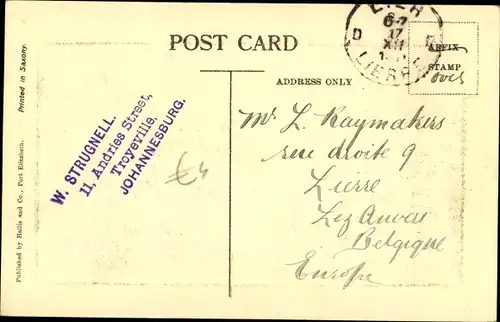 POST CARD
LIER
6-7
D 17 D
XII
LIERRE
AFFIX
STAMP
over
ADDRESS ONLY
Printed in Saxony.
Published by Hallis and Co., Port Elizabeth.
W. STRUGNELL.
11, Andries Street,
Troyeville,
JOHANNESBURG.
£4
Mr L. Raymakers
rue droite 9
Lierre
Lez Anvers
Belgique
Europe